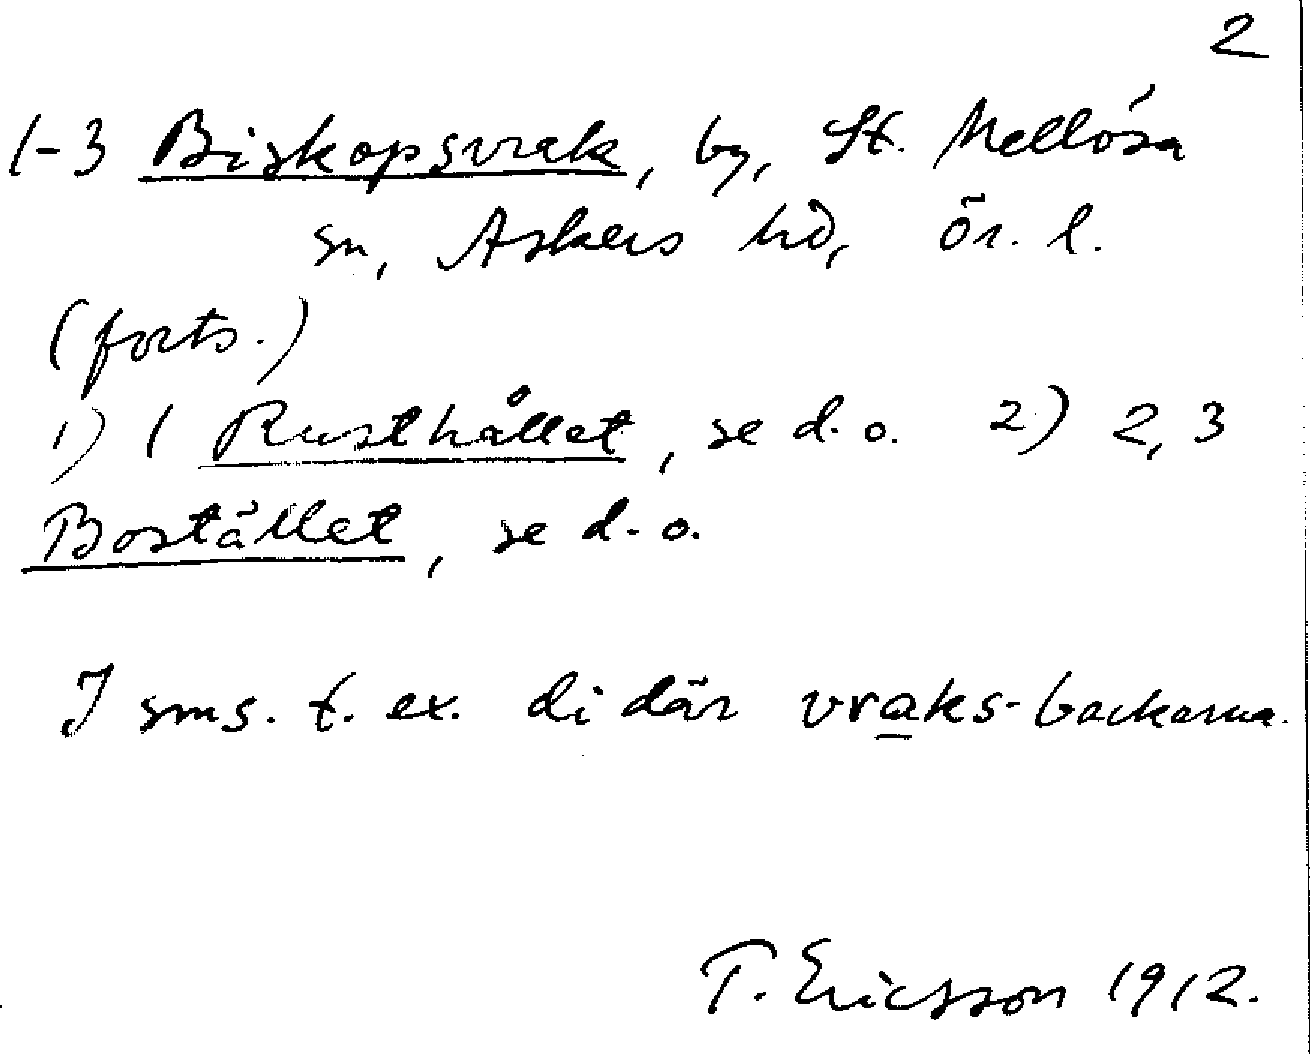 2
1-3 Biskopsvrak, by, St. Mellösa
sn, Askers hd, Ör. l.
(forts.)
1) 1 Rusthållet, se d.o. 2) 2, 3
Bostället, se d.o.
I sms. t. ex. di där vraks-backarna.
T. Ericsson 1912.